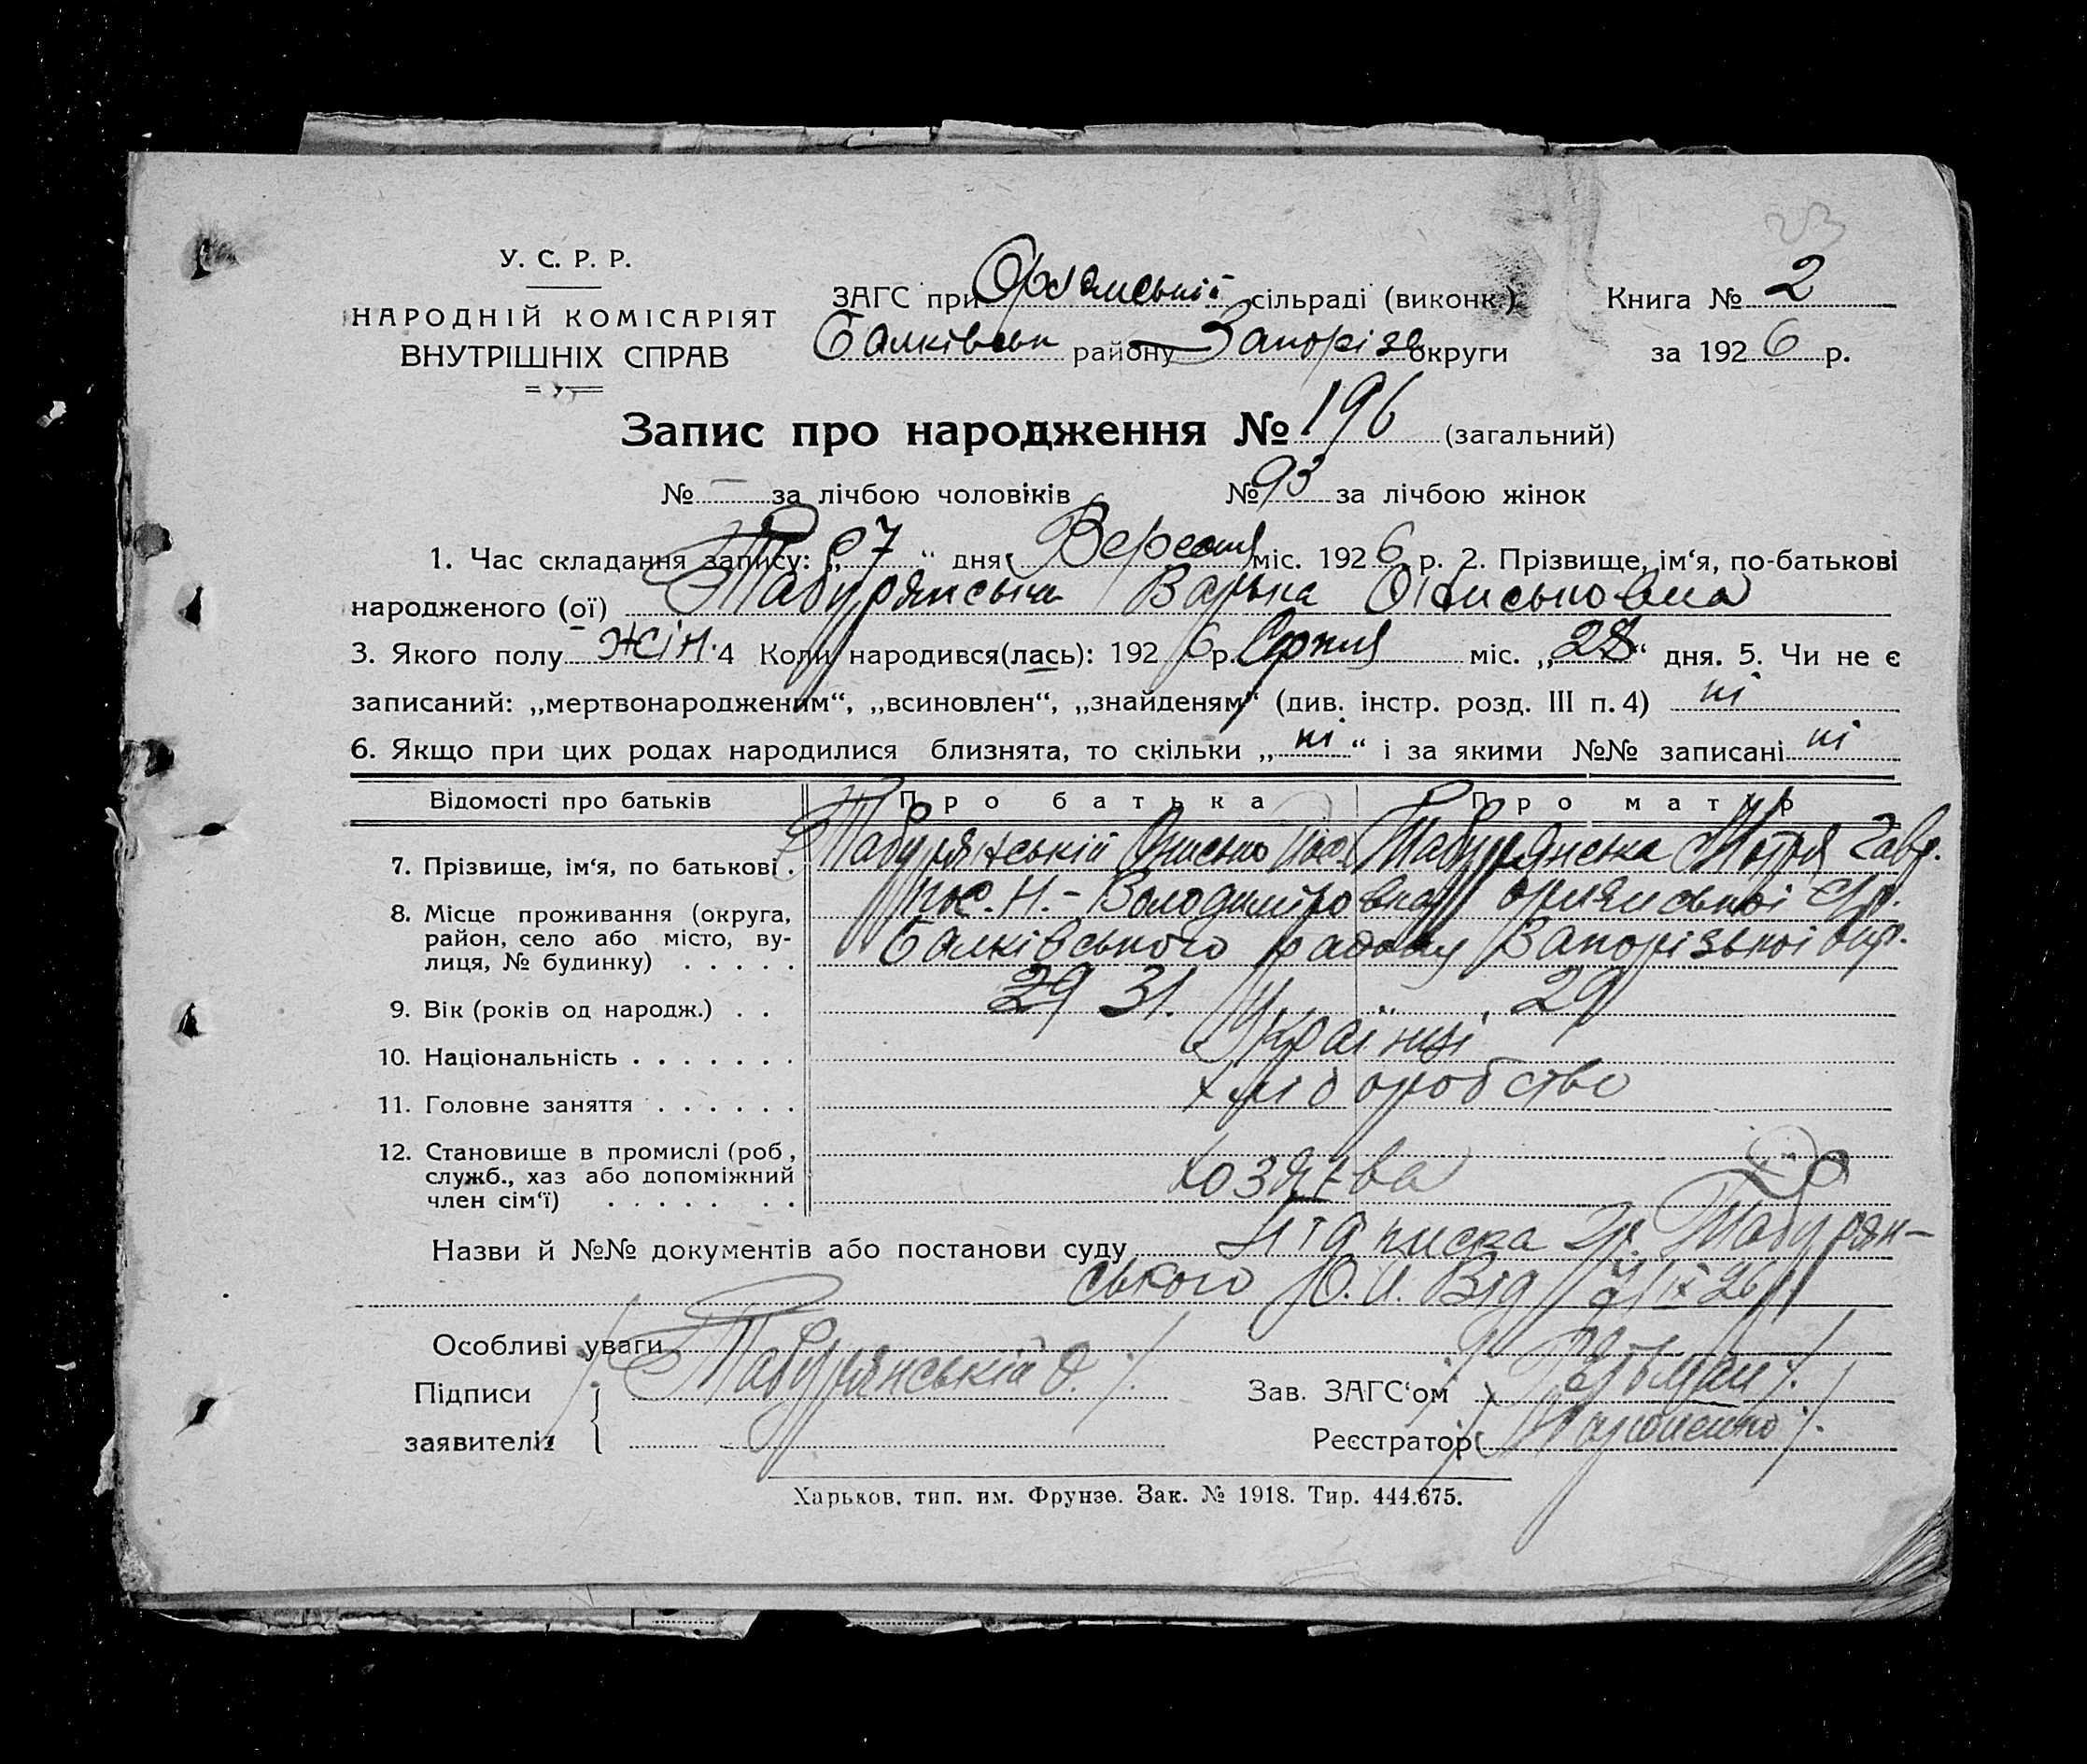 23
У. С. Р. Р.
НАРОДНІЙ КОМІСАРІЯТ
ВНУТРІШНІХ СПРАВ
ЗАГС при Орлянській сільраді (виконк.)
Балківськ району Запорізь округи
Книга № 2
за 1926 р.
Запис про народження № 196 (загальний)
№ — за лічбою чоловіків № 93 за лічбою жінок
1. Час складання запису: „7“ дня Вересня міс. 1926 р. 2. Прізвище, ім‘я, по-батькові
народженого (ої) Табурянська Варька Описьковна
3. Якого полу жін. 4 Коли народився(лась): 1926 р. Серпня міс. „28“ дня. 5. Чи не є
записаний: „мертвонародженим“, „всиновлен“, „знайденям“ (див. інстр. розд. III п. 4) ні
6. Якщо при цих родах народилися близнята, то скільки „ні“ і за якими №№ записані ні
Відомості про батьків Про батька Про матір
7. Прізвище, ім‘я, по батькові . ТабурянськійОписько Йос. Табурянська Мотря Гавр.
8. Місце проживання (округа, район, село або місто, вулиця, № будинку) . . . . . пос. Н.-Володимировка орлянської с/р.
Балківського району Запорізької окр.
9. Вік (років од народж.) . . 29 31. „ 29
10. Національність . . . . . . . Українці
11. Головне заняття . . . . . . хліборобство
12. Становище в промислі (роб, служб., хаз або допоміжний член сім‘ї) . . . . . . . хозяєва
Назви й №№ документів або постанови суду підписка Гр. Табурян-
ського О. Й. Від 7/IX 26 р
Особливі уваги
Підписи Табурянській О. Зав. ЗАГС‘ом Гетьман
заявителів Реєстратор
Харьков. тип. им. Фрунзе. Зак. № 1918. Тир. 444.675.